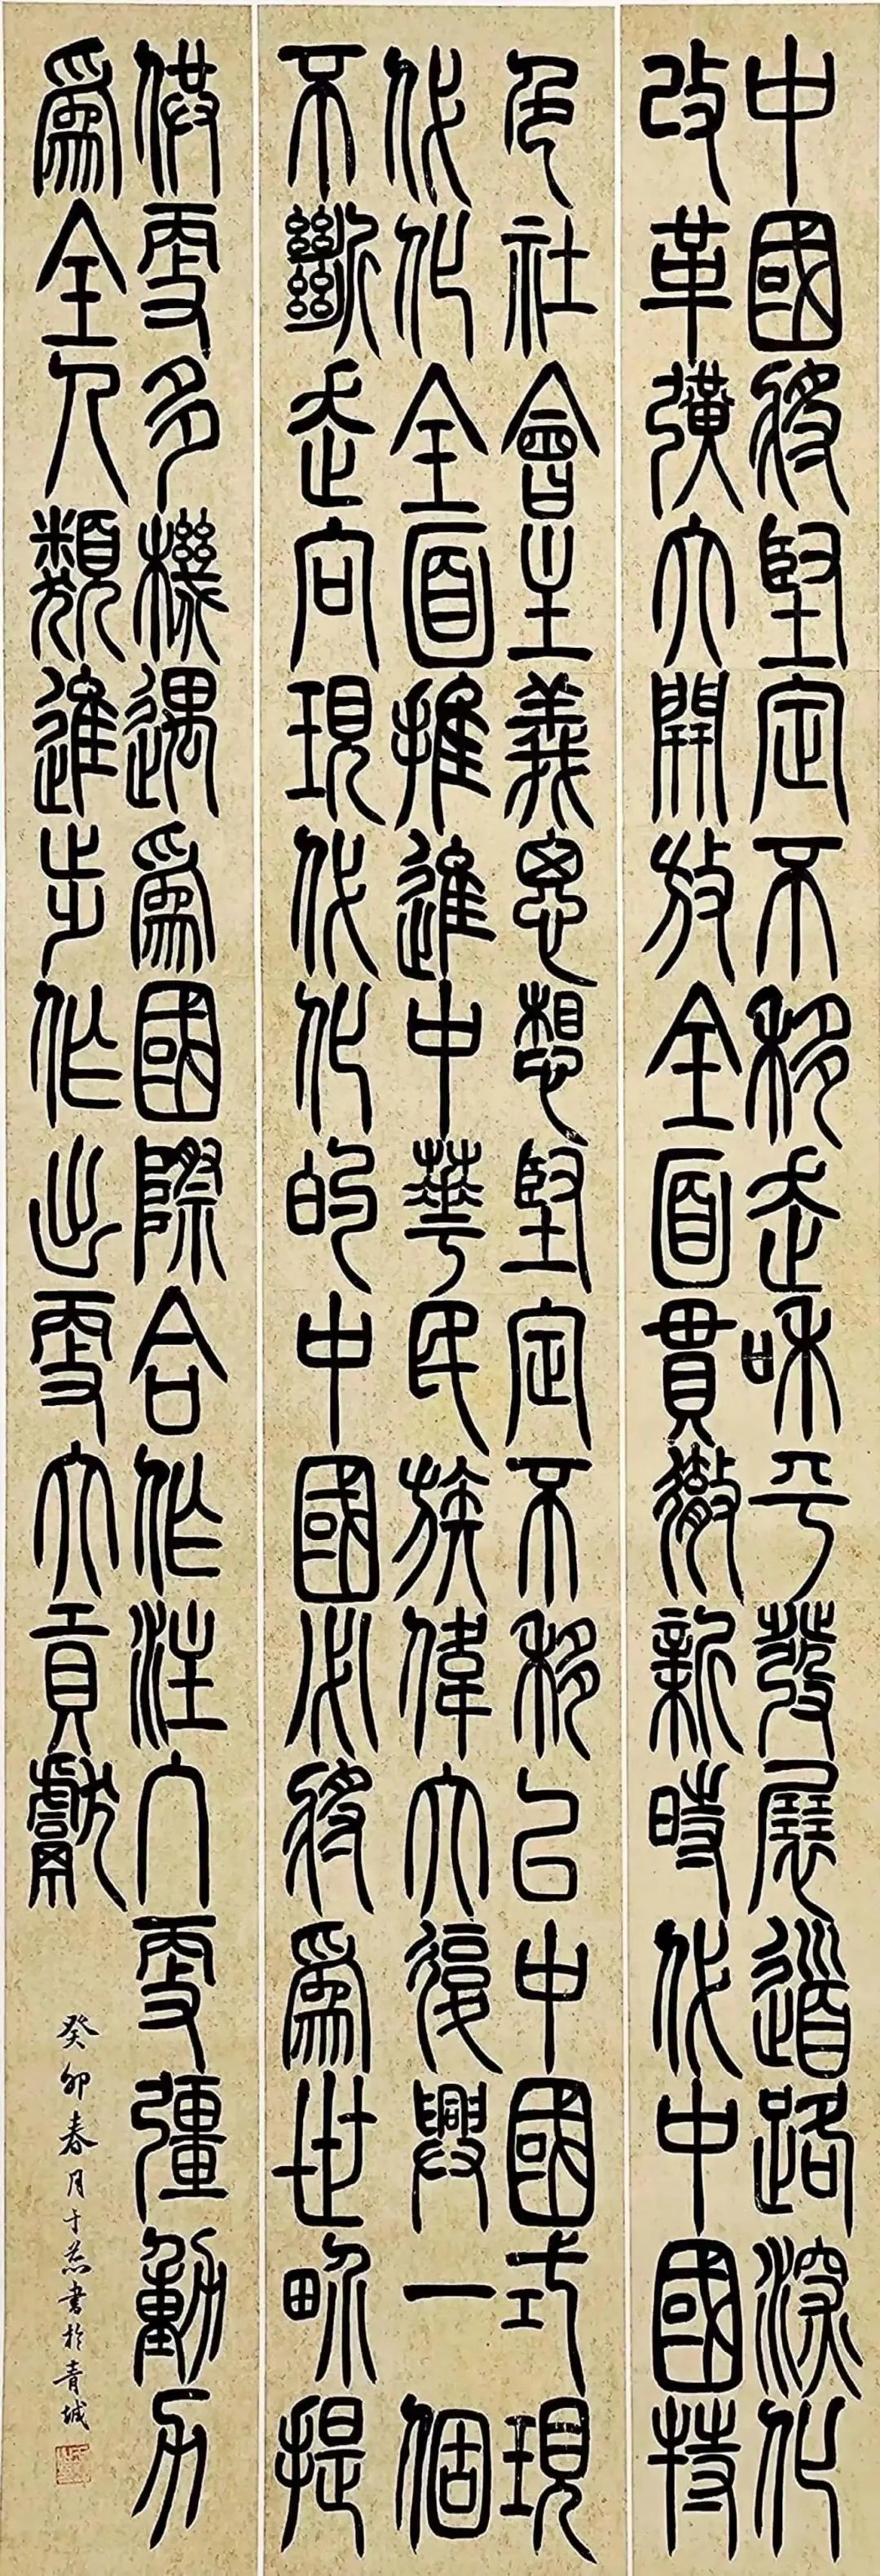 中國將堅定不移走和平發展道路深化
改革擴大開放全面貫徹新時代中國特
色社會主義思想堅定不移以中國式現
代化全面推進中華民族偉大復興一個
不斷走向現代化的中國必將爲世界提
供更多機遇爲國際合作注入更彊動力
爲全人類進步作出更大貢獻
癸卯春月于燕書於青城